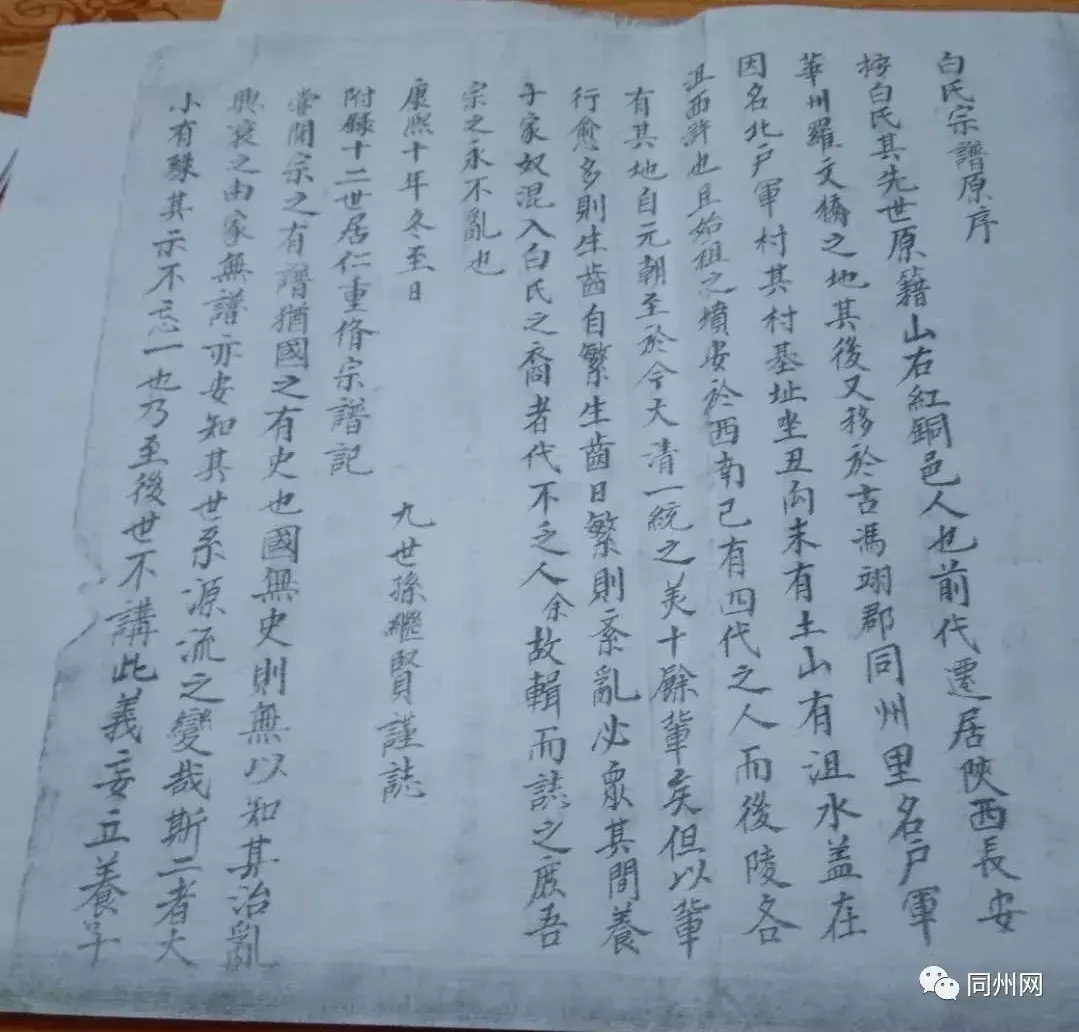 白氏宗譜原序
按白氏其先世原籍山右紅銅邑人也前代遷居陝西長安
華州羅文橋之地其後又移於古馮翊郡同州里名戶軍
因名北戶軍村其村基址坐丑向未有土山有沮水盖在
沮西許也且始祖之墳安於西南已有四代之人而後陵各
有其地自元朝至於今大清一統之美十餘輩矣但以輩
行愈多則生齒自繁生齒日繁則紊亂必眾其間養
子家奴混入白氏之裔者代不乏人余故輯而誌之庶吾
宗之永不亂也
康熙十年冬至日
九世孫繼賢謹誌
附錄十二世居仁重脩宗譜記
嘗聞宗之有譜猶國之有史也國無史則無以知其治亂
興衰之由家無譜亦安知其世系源流之變哉斯二者大
小有殊其示不忘一也乃至後世不講此義妄立養子
同州网